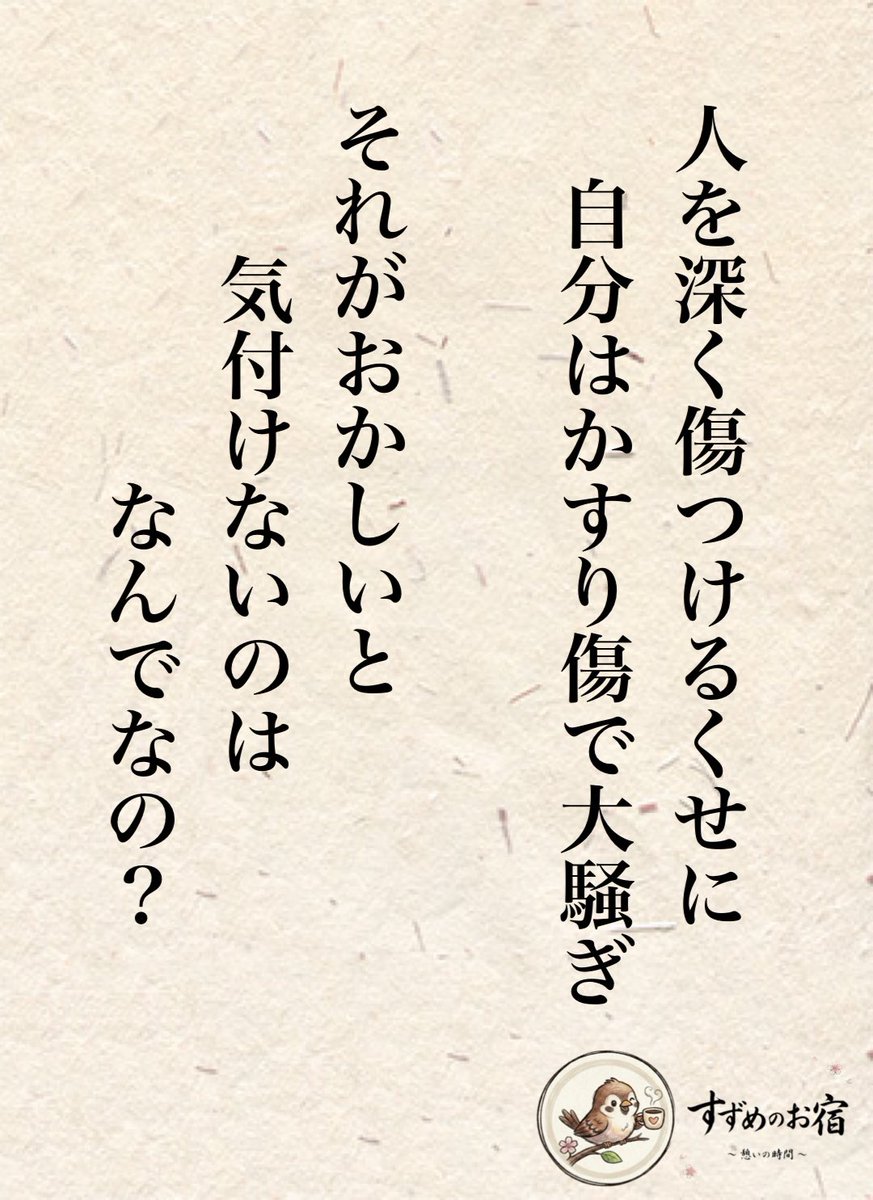 人を深く傷つけるくせに
自分はかすり傷で大騒ぎ
それがおかしいと
気付けないのは
なんでなの?
すずめのお宿
~ 憩いの時間 ~